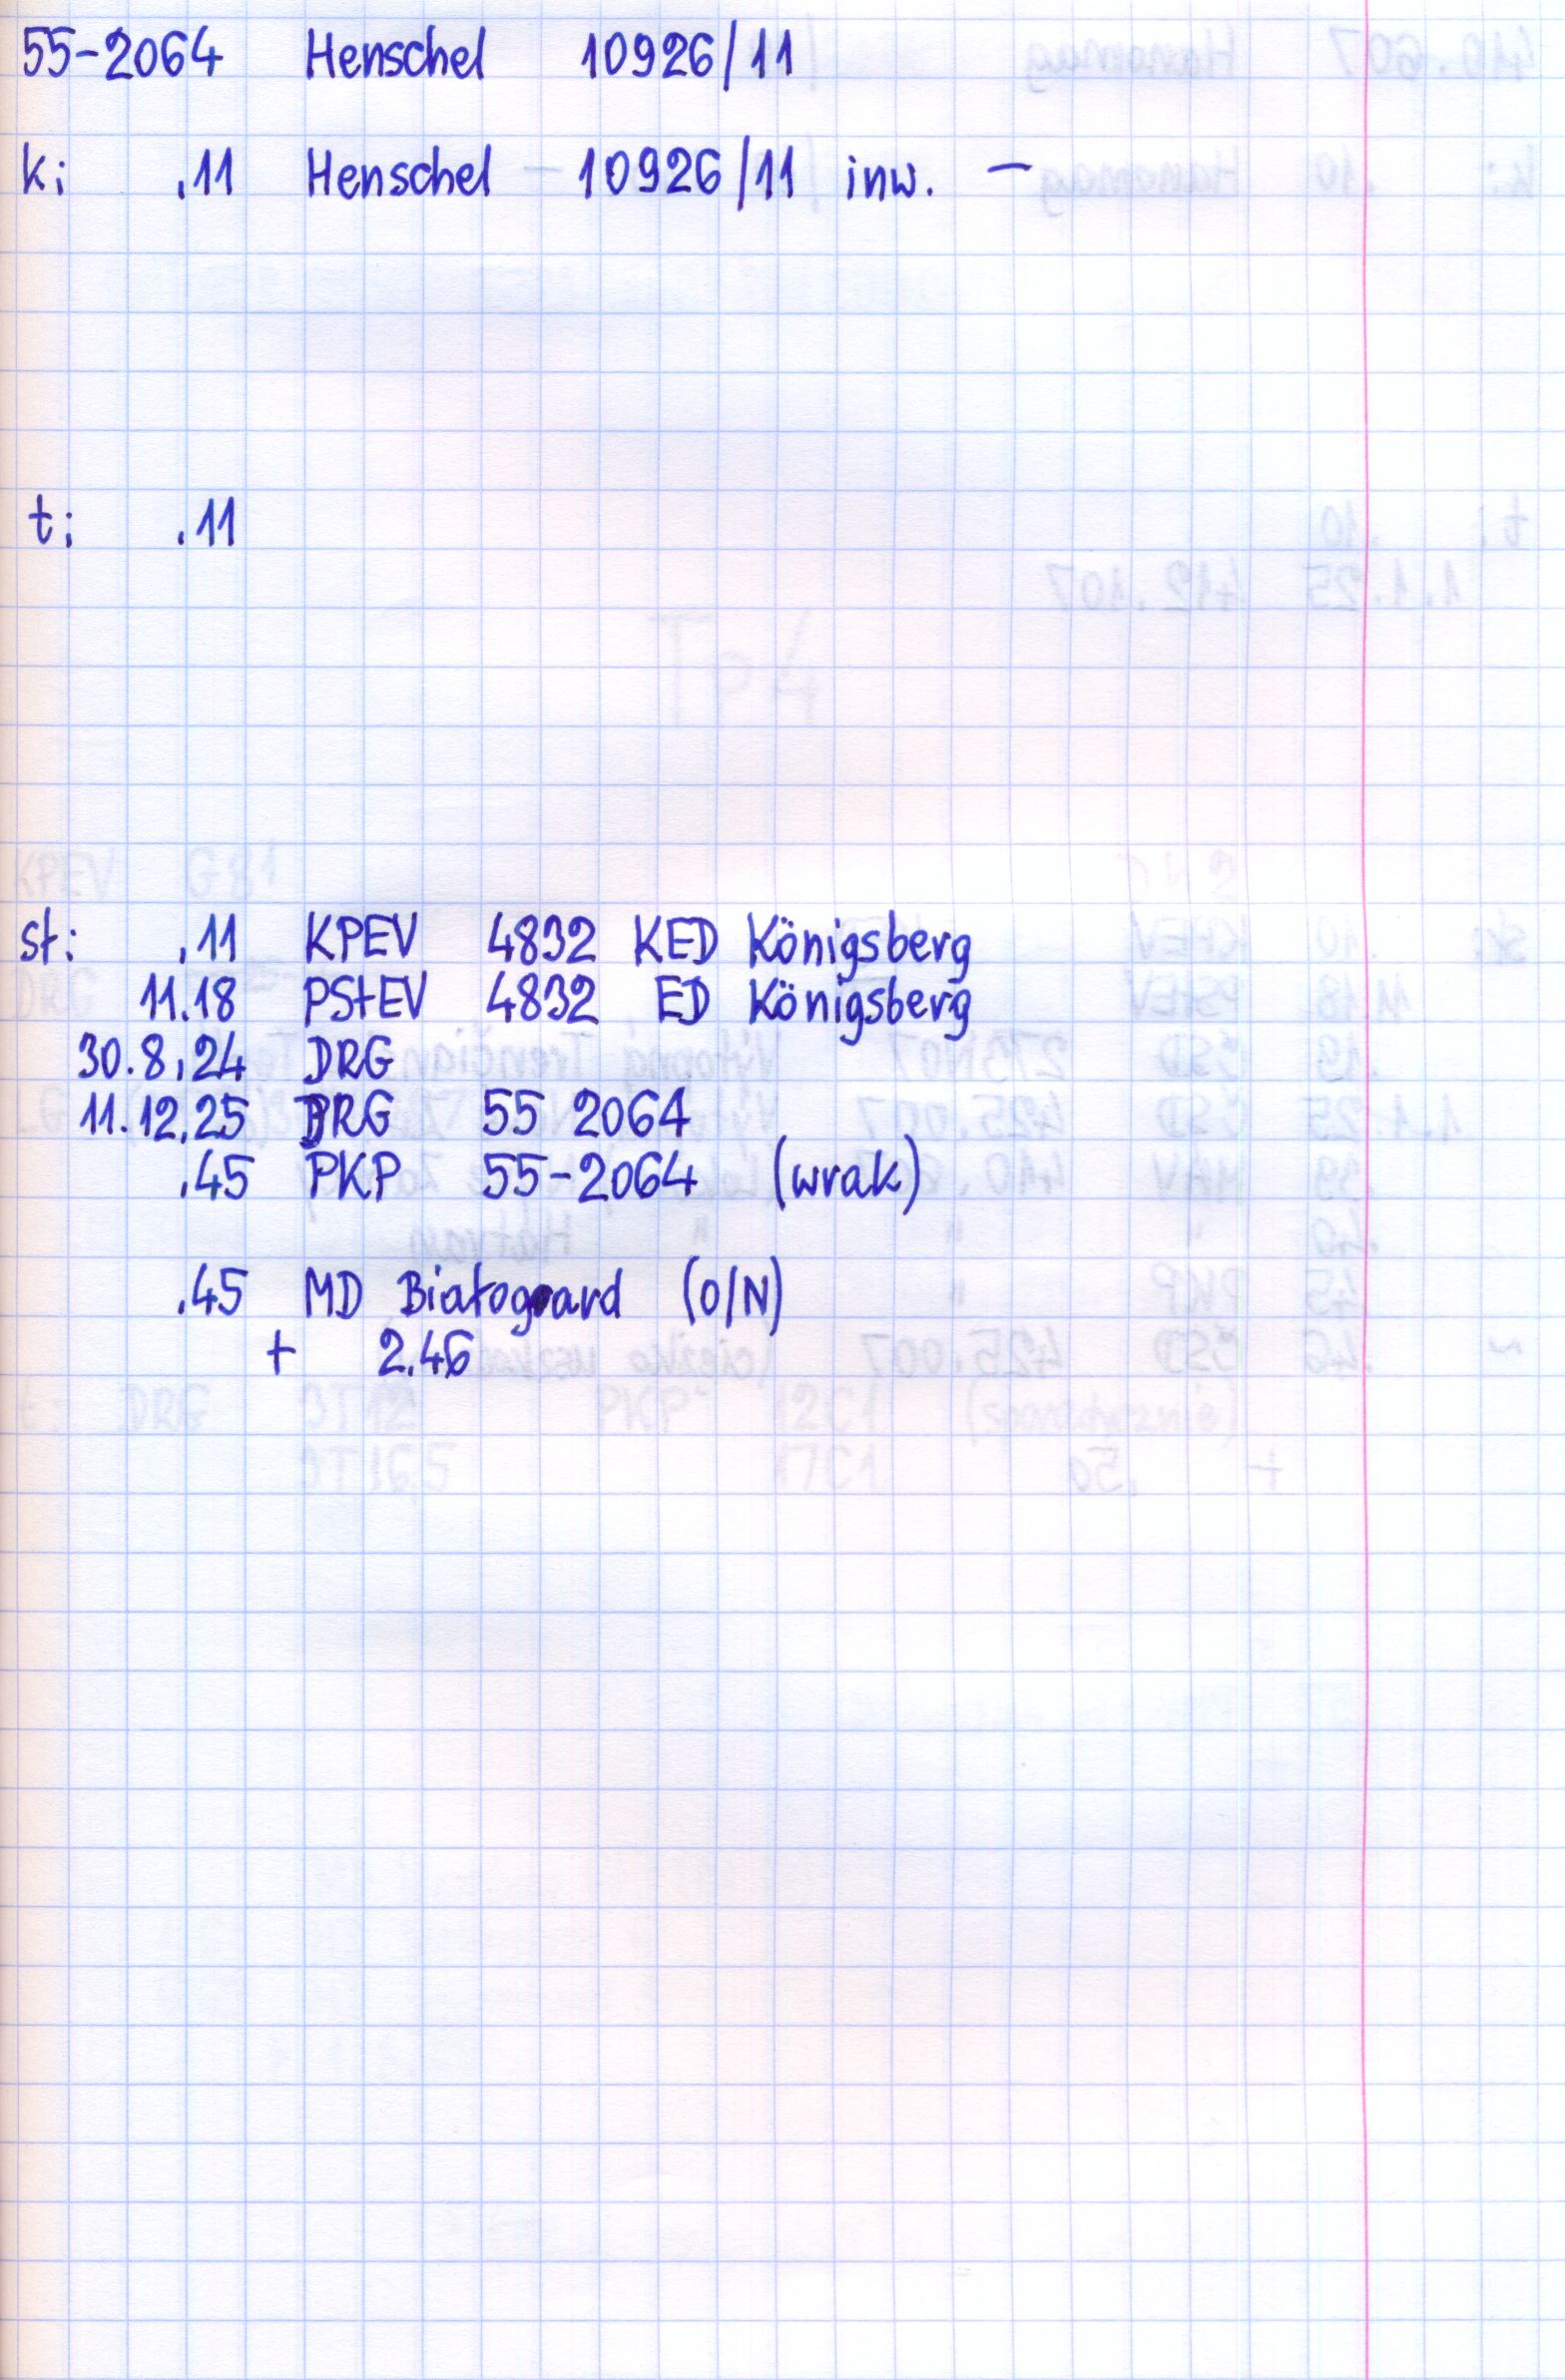 55-2064 Henschel 10926/11
k: .11 Henschel - 10926/11 inw. -
t: .11
st: .11 KPEV 4832 KED Königsberg
11.18 PStEV 4832 ED Königsberg
30.8.24 DRG
11.12.25 DRG 55 2064
.45 PKP 55-2064 (wrak)
.45 MD Białogard (O/N)
+ 2.46